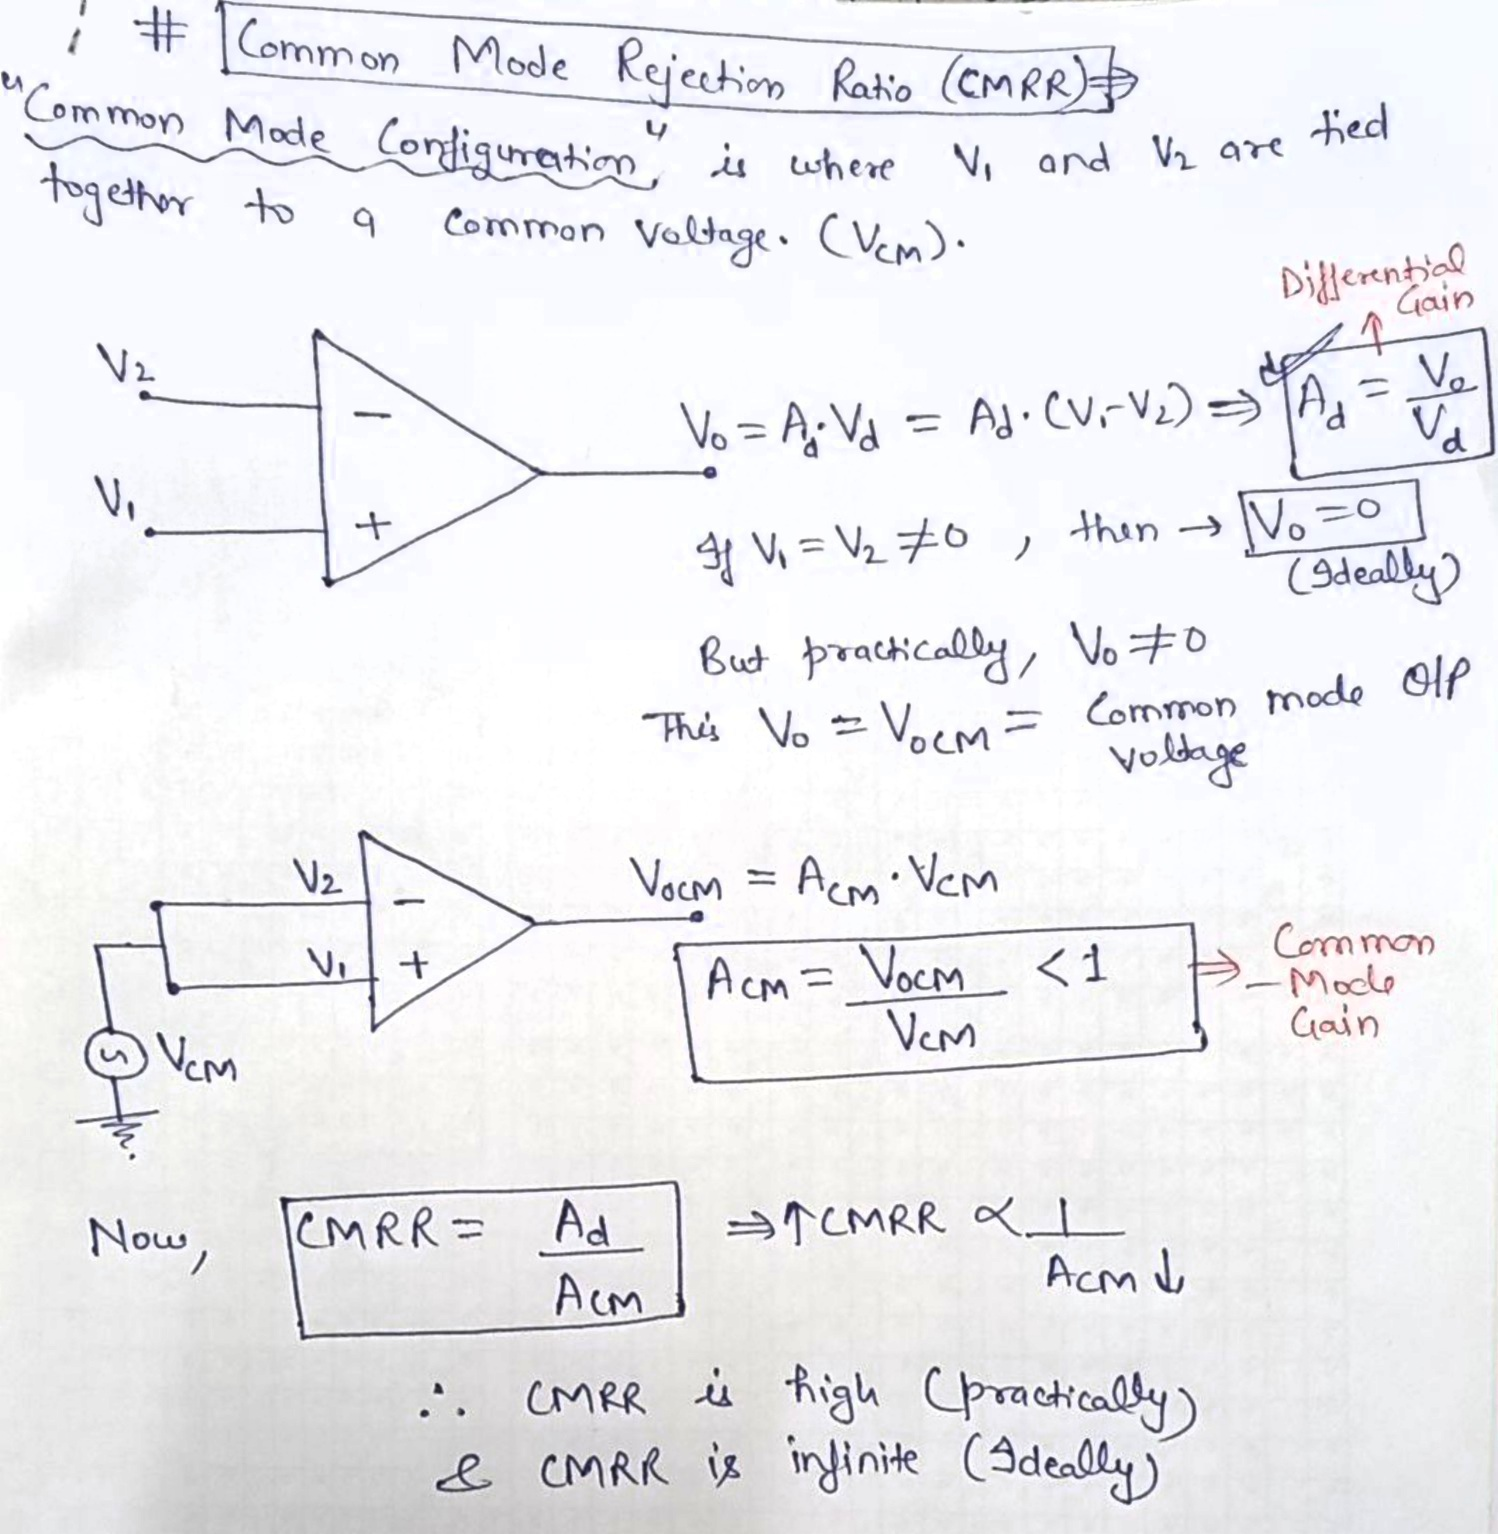 # Common Mode Rejection Ratio (CMRR) ⇒
"Common Mode Configuration" is where V₁ and V₂ are tied
together to a common voltage. (VCM).
Differential
Gain
V₂
−
V₀ = Ad·Vd = Ad·(V₁-V₂) ⇒ Ad = Vo/Vd
V₁
+
If V₁ = V₂ ≠ 0 , then → V₀ = 0
(Ideally)
But practically, V₀ ≠ 0
This V₀ = VOCM = Common mode O/P
voltage
V₂ −
VOCM = ACM · VCM
V₁ +
ACM = VOCM/VCM < 1 ⇒ Common
− Mode
Gain
VCM
Now, CMRR = Ad/ACM ⇒ ↑CMRR ∝ 1/ACM↓
∴ CMRR is high (practically)
& CMRR is infinite (Ideally)